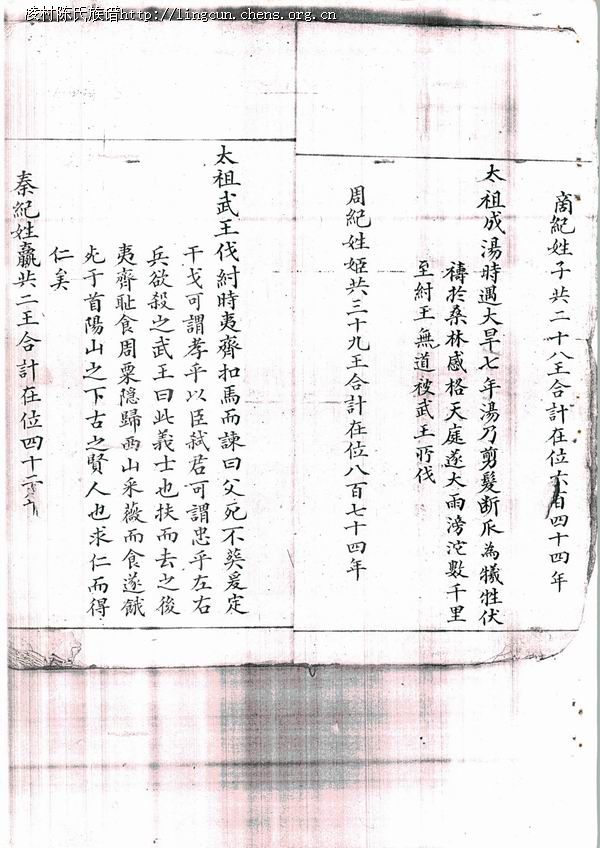 凌村陈氏族谱http://lingcun.chens.org.cn
商紀姓子共二十八王合計在位六百四十四年
太祖成湯時遇大旱七年湯乃剪髮断爪為犧牲伏
禱於桑林感格天庭遂大雨滂沱數千里
至紂王無道被武王所伐
周紀姓姬共三十九王合計在位八百七十四年
太祖武王伐紂時夷齊扣馬而諫曰父死不葬爰定
干戈可謂孝乎以臣弑君可謂忠乎左右
兵欲殺之武王曰此義士也扶而去之後
夷齊耻食周粟隐歸西山采薇而食遂餓
死于首陽山之下古之賢人也求仁而得
仁矣
秦紀姓嬴共二王合計在位四十